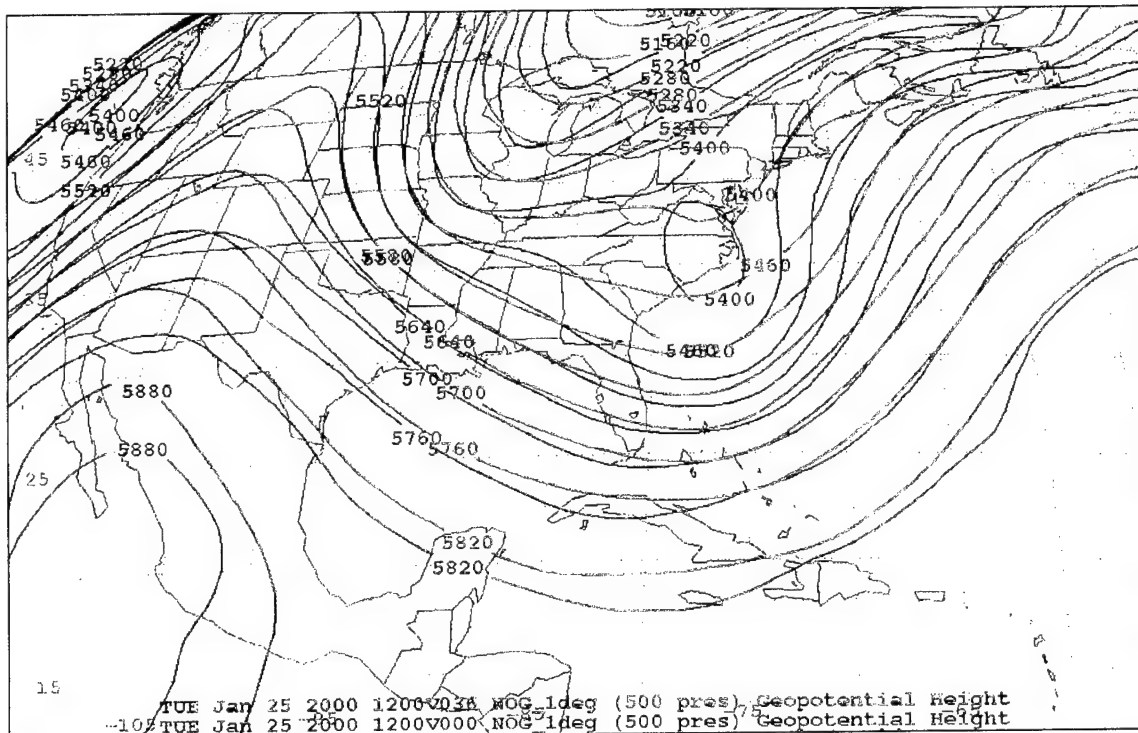 5220
5160
5220
5220
5280
5280
5280
5340
5520
5400
5400
5460
5460
5340
5400
45
5460
5520
5400
5580
5460
5400
35
5640
5640
5460
5520
5700
5700
5880
5760
5760
5880
25
5820
5820
15
TUE Jan 25 2000 1200V036 NOG 1deg (500 pres) Geopotential Height
-105 TUE Jan 25 2000 1200V000 NOG 1deg (500 pres) Geopotential Height